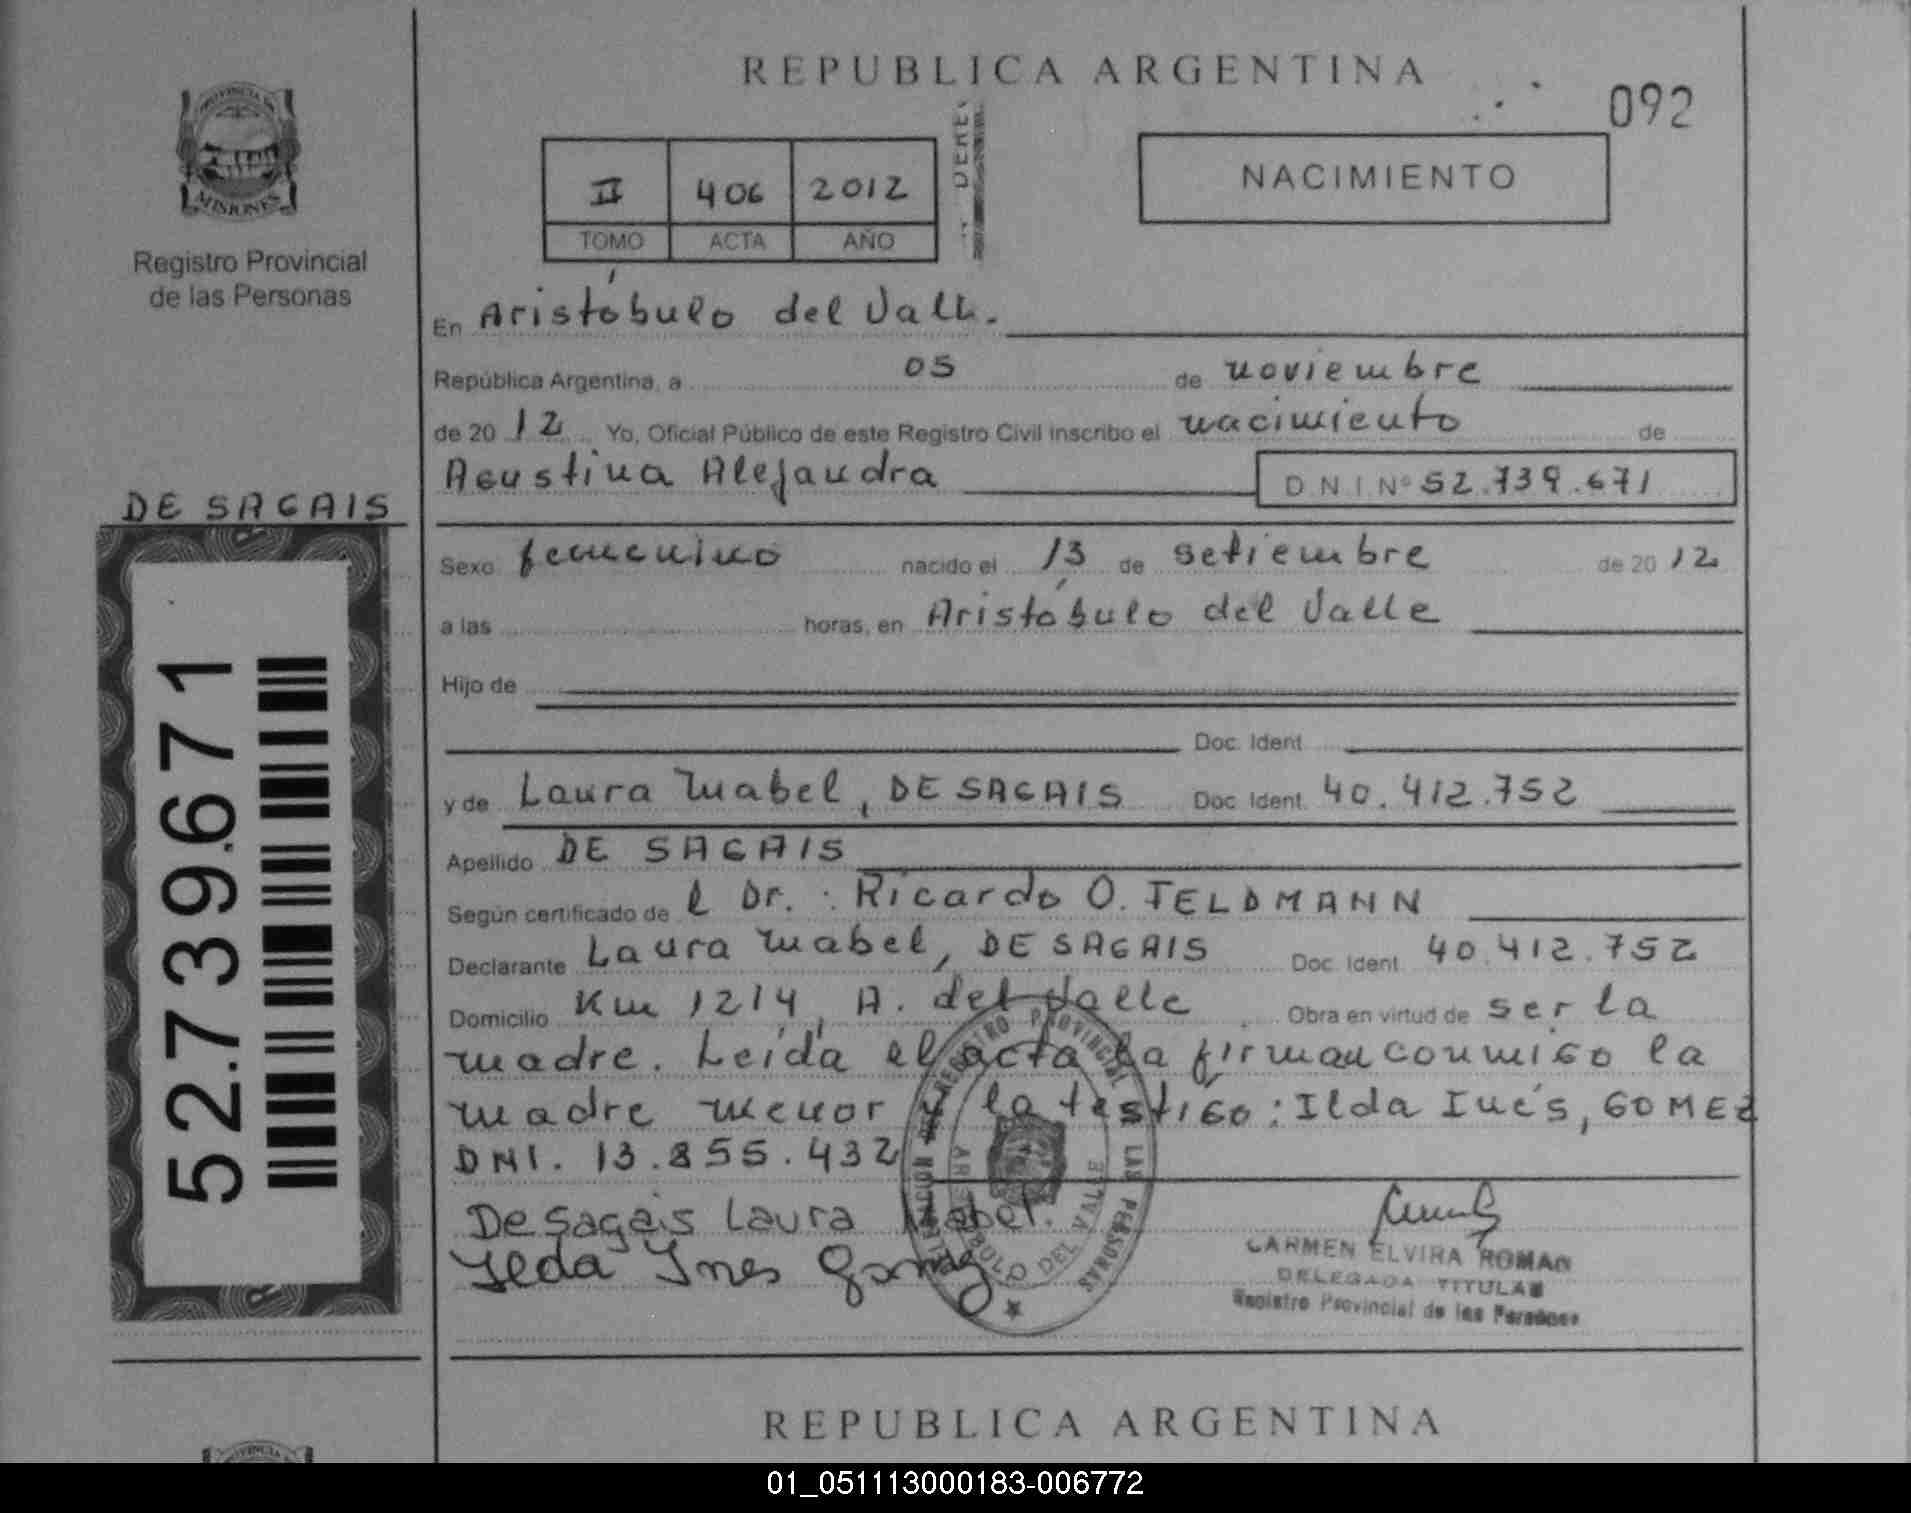 REPUBLICA ARGENTINA
092
PROVINCIA DE
MISIONES
Registro Provincial
de las Personas
II 406 2012
TOMO ACTA AÑO
NACIMIENTO
En Aristóbulo del Valle.
República Argentina, a 05 de noviembre
de 2012 Yo, Oficial Público de este Registro Civil inscribo el nacimiento de
Agustina Alejandra D.N.I. Nº 52.739.671
DE SAGAIS
52.739.671
Sexo femenino nacido el 13 de setiembre de 2012
a las horas, en Aristóbulo del Valle
Hijo de
Doc. Ident.
y de Laura Mabel, DE SAGAIS Doc. Ident. 40.412.752
Apellido DE SAGAIS
Según certificado de l Dr.: Ricardo O. FELDMANN
Declarante Laura Mabel, DE SAGAIS Doc. Ident. 40.412.752
Domicilio Km 1214, A. del Valle Obra en virtud de ser la
madre. Leída el acta la firman conmigo la
madre menor y la testigo: Ilda Inés, GOMEZ
DNI. 13.855.432
De Sagais Laura Mabel.
Ilda Ines Gomez
REGISTRO PROVINCIAL DE LAS PERSONAS
ARISTOBULO DEL VALLE
CARMEN ELVIRA ROMAO
DELEGADA TITULAR
Registro Provincial de las Personas
REPUBLICA ARGENTINA
01_051113000183-006772